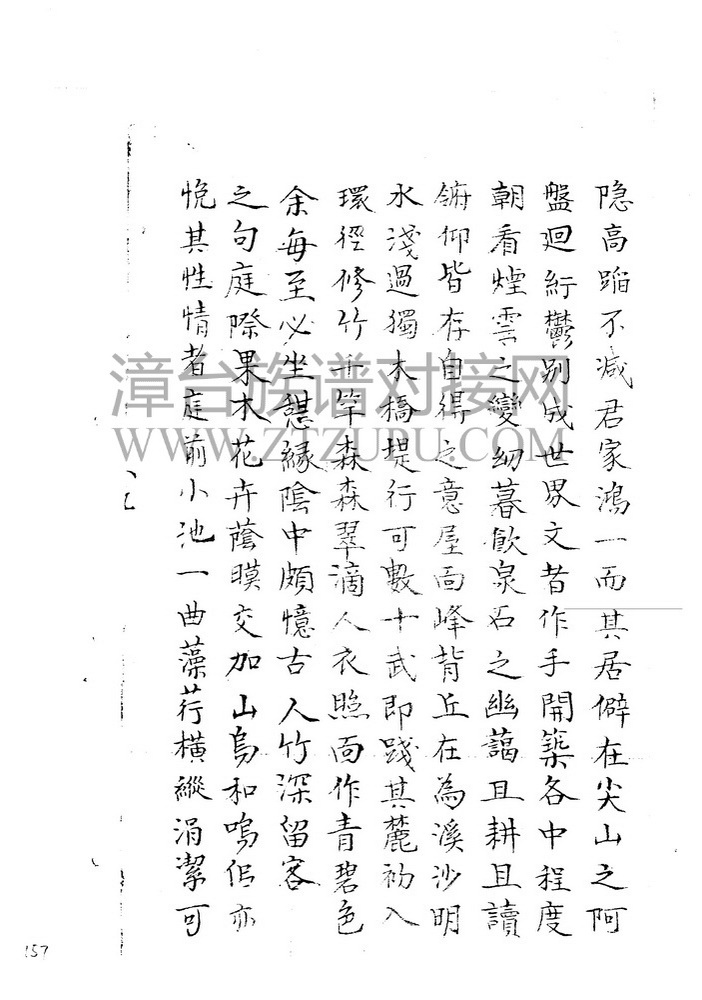 隐高蹈不减君家鴻一而其居僻在尖山之阿
盤廻紆欝別成世界文者作手開築各中程度
朝看煙雲之變幻暮飲泉石之幽藹且耕且讀
俯仰皆存自得之意屋面峰背丘在為溪沙明
水淺過獨木橋堤行可數十武即踐其麓初入
環徑修竹千竿森森翠滴人衣照面作青碧色
余每至必坐憇緣陰中頗憶古人竹深留客
之句庭際果木花卉蔭暎交加山鳥和鳴佀亦
悦其性情者庭前小池一曲藻荇橫縱涓潔可
漳台族谱对接网
WWW.ZTZUPU.COM
157